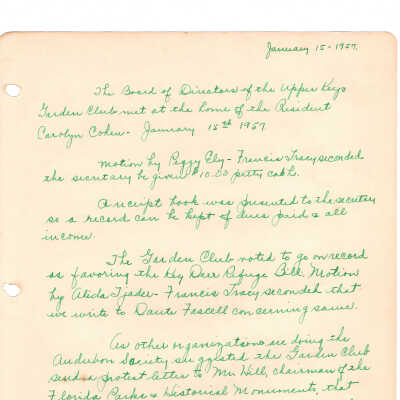 January 15 - 1957.
The Board of Directors of the Upper Keys
Garden Club met at the home of the President
Carolyn Cohen - January 15th 1957
Motion by Peggy Eby - Francis Tracy seconded
the secretary be given $10.00 petty cash.
A receipt book was presented to the secretary
so a record can be kept of dues paid & all
income.
The Garden Club voted to go on record
as favoring the Key Deer Refuge Bill. Motion
by Alida Tjader - Francis Tracy seconded that
we write to Dante Fascell concerning same.
As other organizations are doing the
Audubon Society suggested the Garden Club
send a protest letter to Mr. Will, chairman of the
Florida Parks & Historical Monuments, that